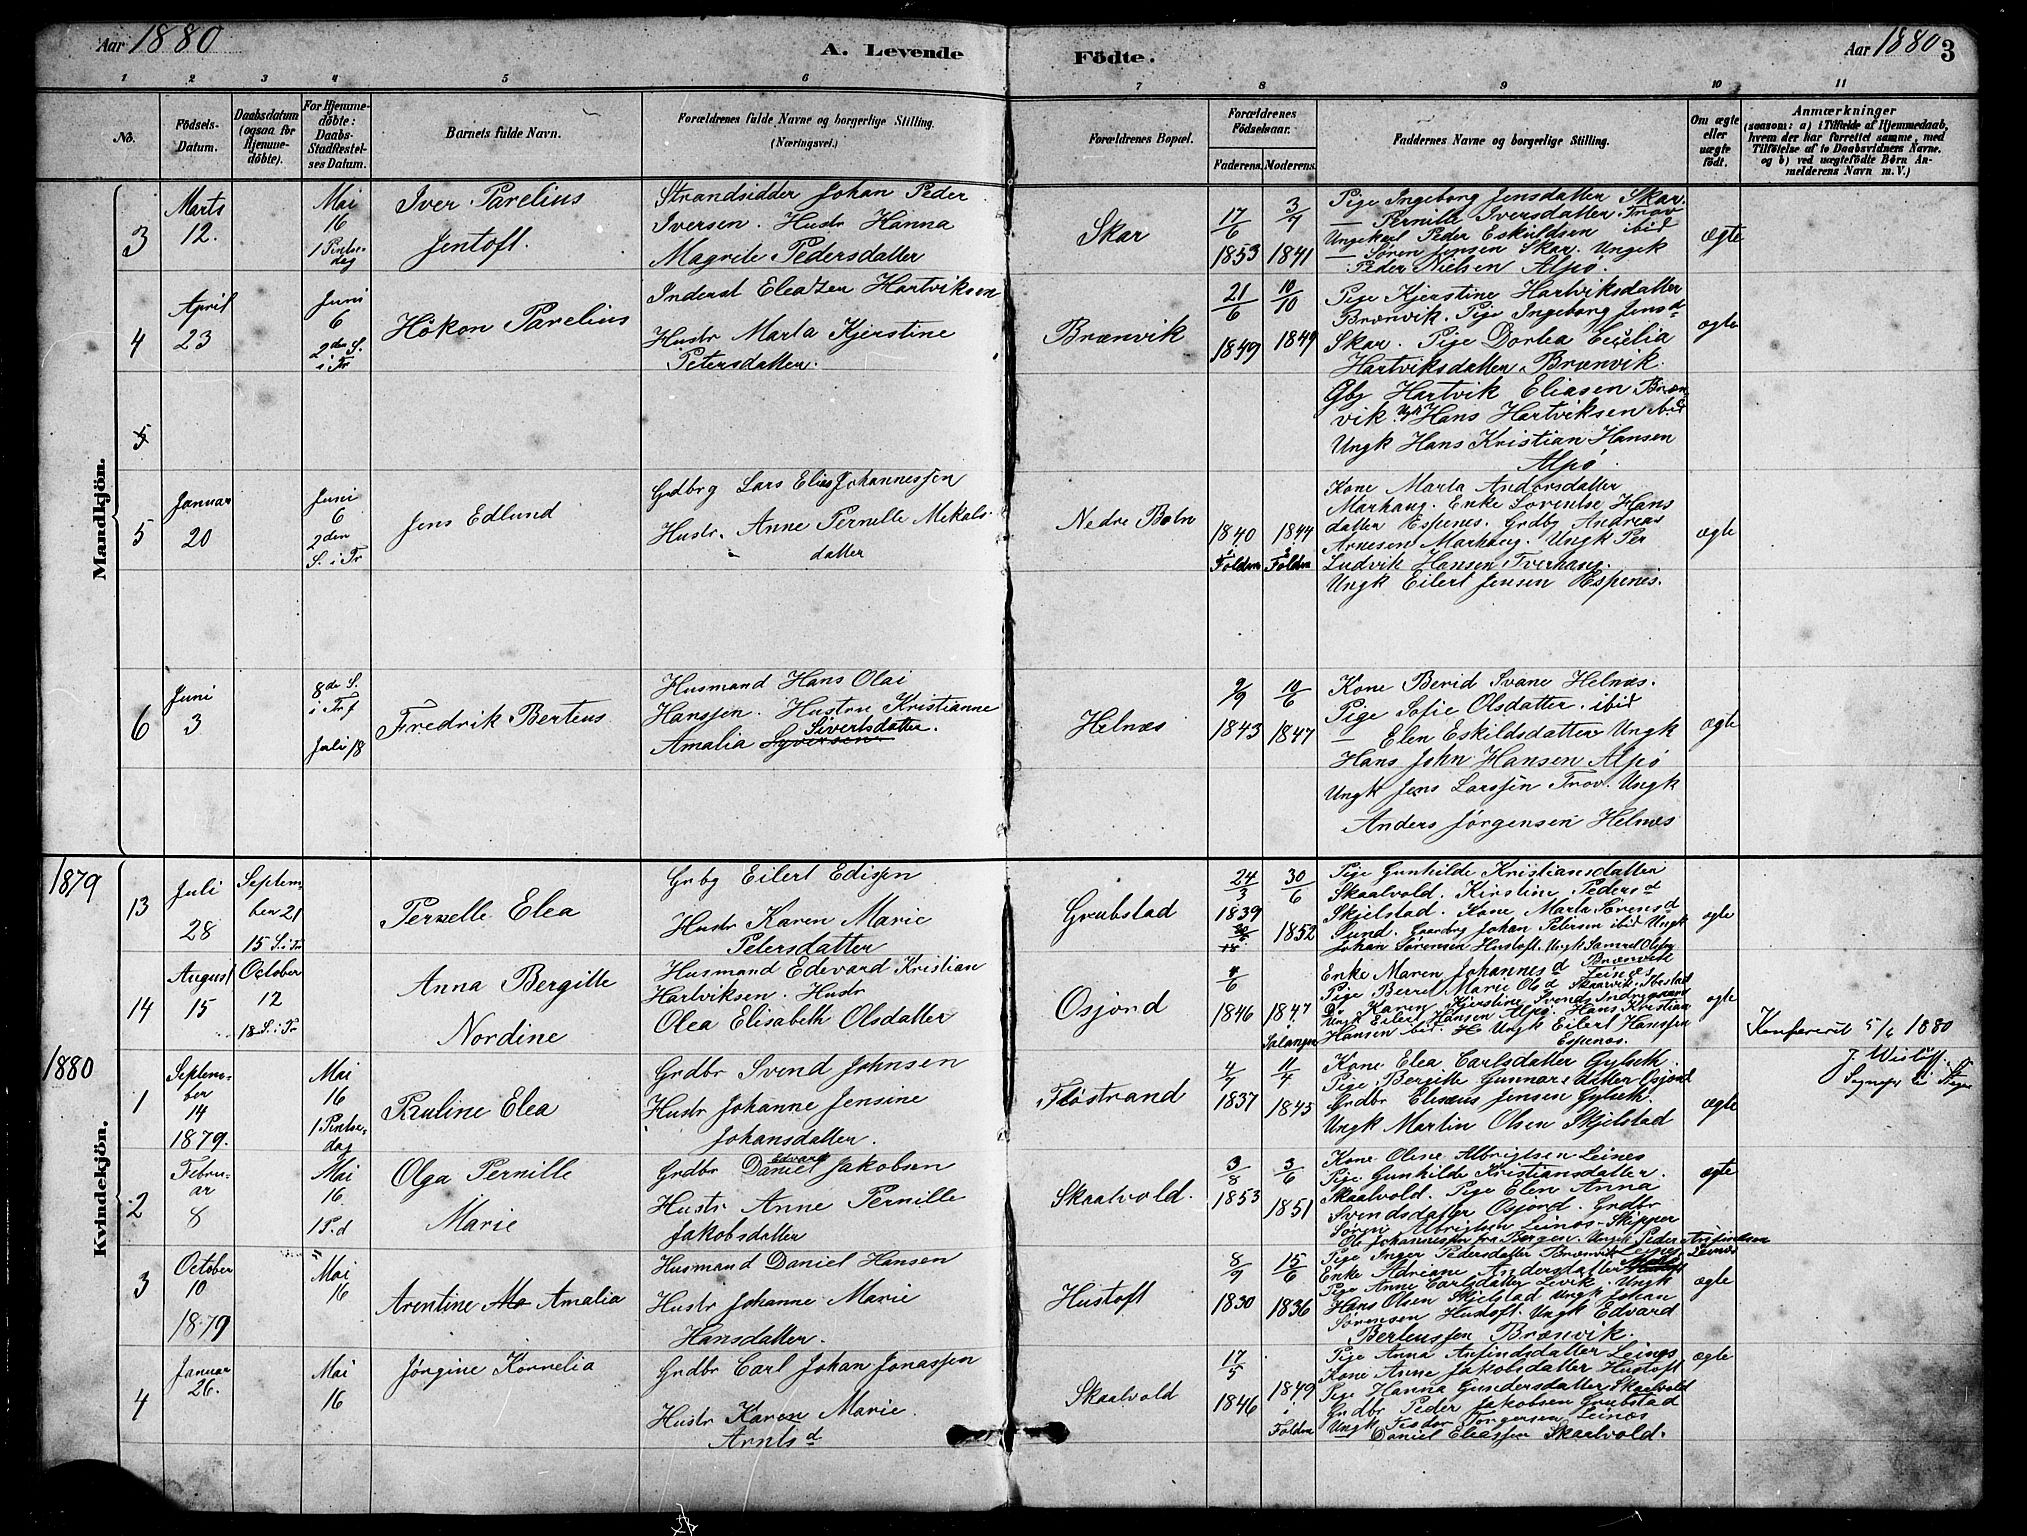 Aar 1880
A. Levende
Födte.
Aar 1880
3
1 2 3 4 5 6 7 8 9 10 11
No.
Födsels-
Datum.
Daabsdatum
(ogsaa for
Hjemme-
döbte).
For Hjemme-
döbte:
Daabs-
Stadfestel-
ses Datum.
Barnets fulde Navn.
Forældrenes fulde Navne og borgerlige Stilling.
(Næringsvei.)
Forældrenes Bopæl.
Forældrenes
Födselsaar.
Faderens. Moderens.
Faddernes Navne og borgerlige Stilling.
Om ægte
eller
uægte
födt.
Anmærkninger
(saasom: a) i Tilfælde af Hjemmedaab,
hvem der har forrettet samme, med
Tilföielse af to Daabsvidners Navne.
og b) ved uægtefödte Börn An-
melderens Navn m. V.)
Mandkjön.
3
Marts
12.
Mai
16
1 Pintse-
dag
Iver Parelius
Jentoft.
Strandsidder Johan Peder
Iversen. Hustr Hanna
Magrite Pedersdatter
Skar
17/6
1853
3/7
1841
Pige Ingeborg Jensdatter Skar.
— Pernille Iversdatter. Trov
Ungekarl Peder Eskildsen ibid
— Søren Jensen Skar. Ungk
Peder Nielsen Alpø.
ægte
4
April
23
Juni
6
2den S.
i Tr
Hökon Parelius
Inderst Eleazer Hartviksen
Hustr Marta Kjerstine
Petersdatter.
Brænvik
21/6
1849
10/10
1849
Pige Kjerstine Hartviksdatter
Brænvik. Pige Ingeborg Jensd
Skar. Pige Dorlea Cecilia
Hartviksdatter Brænvik.
ægte
5
Gbg Hartvik Eliasen Bræn
vik. Ugk Hans Hartviksen ibid
Ungk Hans Kristian Hansen
Alpø.
5
Januar
20
Juni
6
2den
S. i Tr
Jens Edlund
Grdbrg Lars Elias Johannessen
Hustr. Anne Pernille Mekals-
datter
Nedre Botn
1840
i
Folden
1844
i
Folden
Kone Marta Andersdatter
Marhaug. Enke Lorentse Hans
datter Espenes. Grdbg Andreas
Arnesen Marhaug. Ungk Per
Ludvik Hansen Tverhaug.
Ungk Eilert Jensen Espenes.
ægte
6
Juni
3
8de S.
i Trf
Juli 18
Fredrik Berteus
Husmand Hans Olai
Hanssen. Hustru Kristianne
Sivertsdatter.
Amalia Syversen
Helnæs
9/9
1843
10/6
1847
Kone Berid Svane Helnæs.
Pige Sofie Olsdatter. ibid
— Elen Eskildsdatter Ungk
Hans John Hansen Alpø
Ungk Jens Larssen Trov. Ungk
Anders Jørgensen Helnæs
ægte
1879
13
Juli
28
Septem-
ber 21
15 S. i Tr
Pernelle Elea
Grbg Eilert Edissen
Hustr Karen Marie
Petersdatter
Grubstad
24/3
1839
30/6
1852
Pige Gunhilde Kristiansdatter
Skaalvold. Kirstine Pedersd
Skjelstad. Kone Marta Sörensd
Sund. Gaardbrg Johan Petersen ibid Ungk
Johan Sørensen Hustoft. Ungk Samuel
ægte
14
August
15
October
12
18 S. i Tr
Anna Bergitte
Nordine
Husmand Edevard Kristian
Hartviksen. Hustr
Olea Elisabeth Olsdatter
Osjord
4/6
1846
1847
i
Salangen
Enke Maren Johannesd Brænvik
Pige Berret Marie Olsd Skaarvik. Ibestad
Leines
Do Karen Kjerstine Svends Indrigaard
Ungk Eilert Hansen Alpø. Hans Kristian
Hansen ibid. Ungk Eilert Hanssen
Espenæs.
ægte
Konfereret 5/6 1880
J. Wisløff.
1880
Kvindekjön.
1
Septem-
ber
14
1879.
Mai
16
1 Pintse-
dag
Pauline Elea
Grdbr Svend Johnsen
Hustr Johanne Jensine
Johansdatter.
Fløstrand
4/7
1837
11/4
1845
Kone Elea Carlsdatter Gylseth.
Pige Bergitte Gunnarsdatter Osjord
Grdbr Elisæus Jensen Gylseth.
Ungk Martin Olsen Skjelstad
ægte
2
Febru-
ar
8
Mai
16
1 P. d
Olga Pernille
Marie
Edvard
Grdbr Daniel Jakobsen
Hustr Anne Pernille
Jakobsdatter
Skaalvold.
3/8
1853
3/6
1851
Kone Oline Albrigtsen Leines
Pige Gunhilde Kristiansdatter.
Skaalvold. Pige Elen Anna
Svendsdatter Osjord. Grdbr
Sören Albrigtsen Leinæs. Skipper
Ole Johannessen fra Bergen. Ungk Peder Arnfindsen
Leinæs
ægte
3
October
10
1879
Mai
16
Arentine Ma Amalia
Husmand Daniel Hansen
Hustr Johanne Marie
Hansdatter.
Hustoft
8/9
1830
15/6
1836
Pige Inger Pedersdatter Brænvik
Enke Adriane Andersdatter
Pige Anne Carlsdatter Levik. Ungk
Hans Olsen Skjelstad Ungk Johan
Sørensen Hustoft. Ungk Edvard
Berteussen Brænvik.
ægte
4
Januar
26.
Mai
16
Jørgine Kornelia
Grdbr Carl Johan Jonassen
Hustr Karen Marie.
Arntsd
Skaalvold
17/5
1846
1849
i
Folden
Pige Anna Anfindsdatter Leines
Kone Anne Jakobsdatter Hustoft
Pige Hanna Gundersdatter Skaalvold
Grdbr Peder Jakobsen Grubstad
Ungk Fredor Torgersen Leinæs
Daniel Eliassen Skaalvold.
ægte